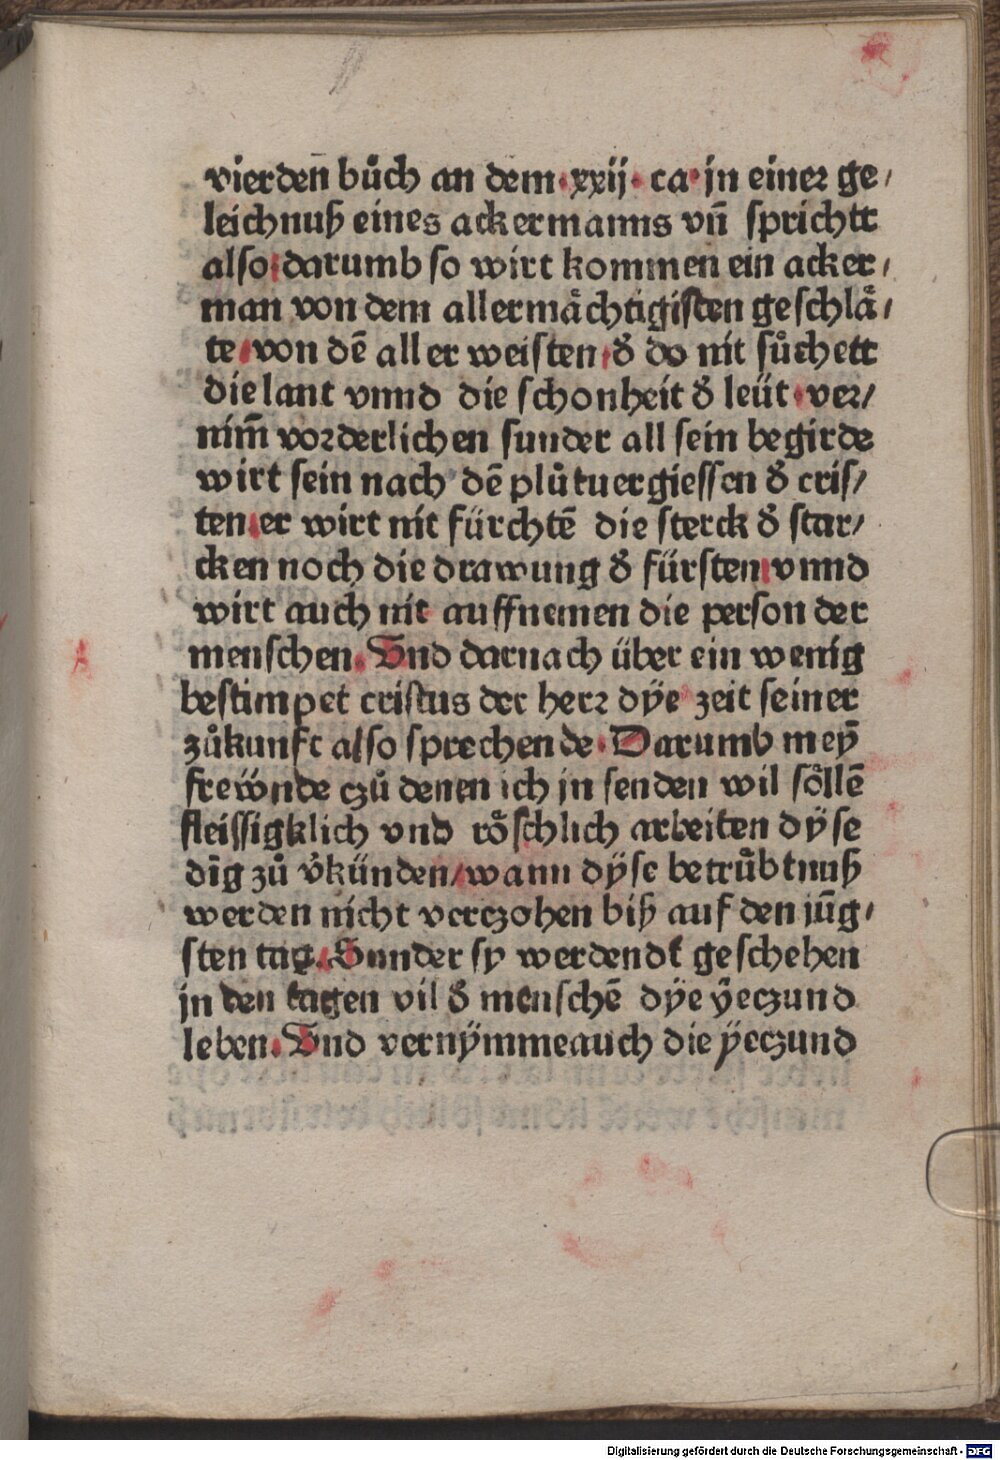 vierden bůch an dem·xxij·ca·jn einer ge/
leichnuß eines ackermanns vn̄ sprichtt
also·darumb so wirt kommen ein acker/
man von dem allermåchtigisten geschlå/
te/von dē aller weisten/đ do nit sůchett
die lant vnnd die schonheit đ leüt·ver/
nim̄ vorderlichen sunder all sein begirde
wirt sein nach dē plůtuergiessen đ cris/
ten·er wirt nit fürchtē die sterck đ star/
cken noch die drawung đ fürsten/vnnd
wirt auch nit auffnemen die person der
menschen. Vnd darnach über ein wenig
bestimpet cristus der herr dÿe zeit seiner
zůkunft also sprechende· Darumb meȳ
frewnde czů denen ich jn senden wil söllē
fleissigklich vnd röschlich arbeiten dÿse
dīg zů v̄künden/wann dÿse betrůbtnuß
werden nicht verczohen biß auf den jūg/
sten tag. Sunder sy werdendt geschehen
jn den tagen vil đ menschē dÿe ÿeczund
leben. Vnd vernÿmmeauch die ÿeczund
Digitalisierung gefördert durch die Deutsche Forschungsgemeinschaft - DFG